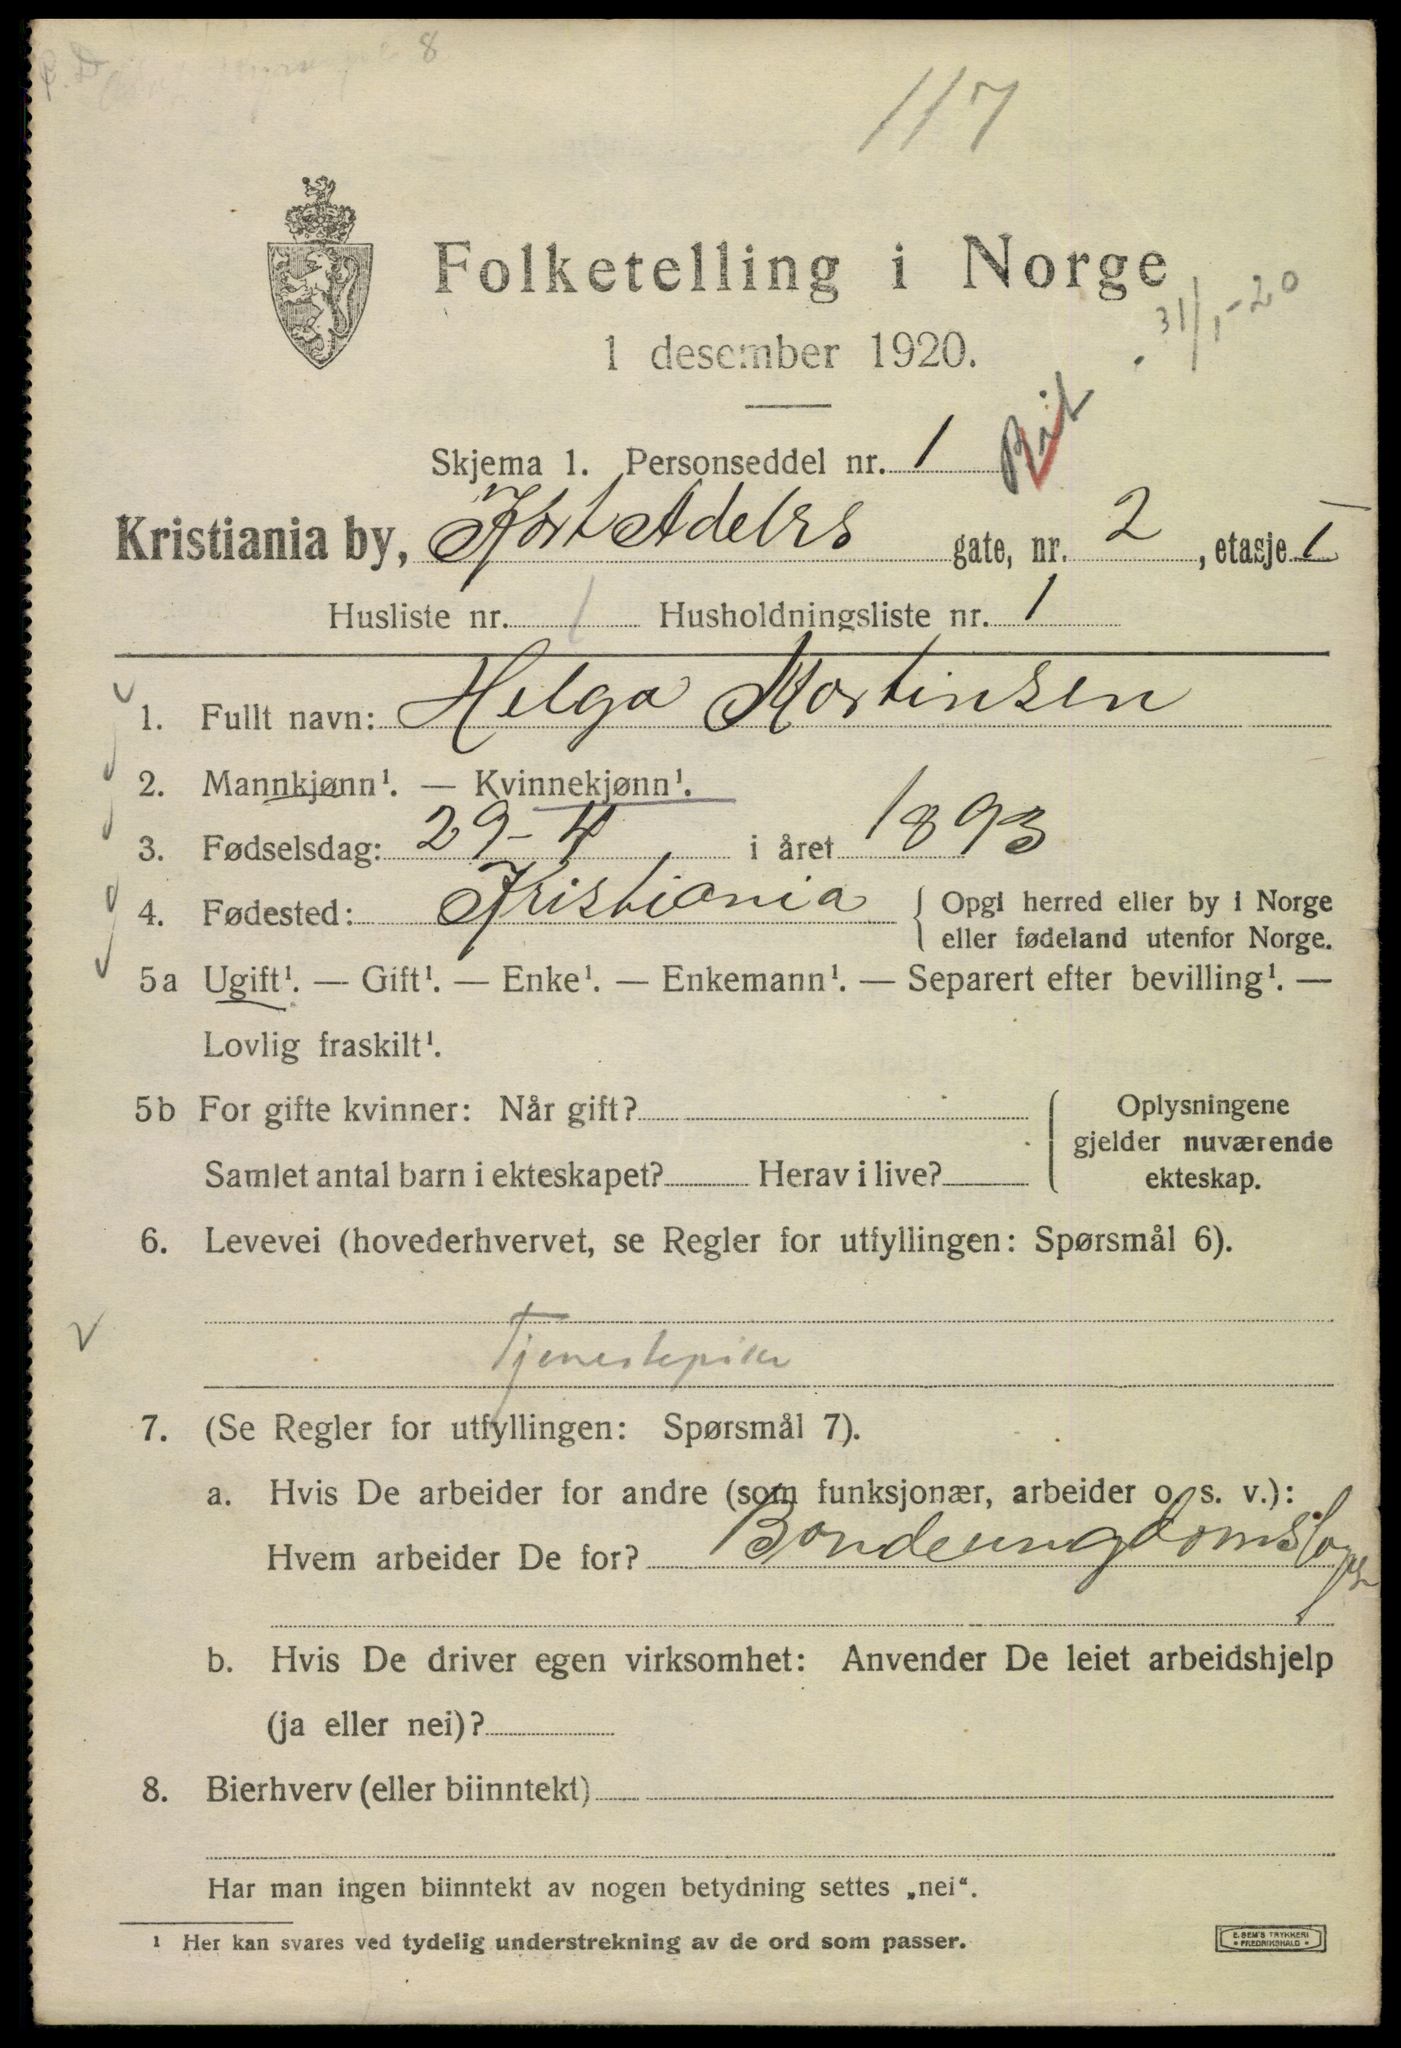 8
117
Folketelling i Norge
31/1-20
1 desember 1920.
Skjema 1. Personseddel nr. 1
Kristiania by, Kort Adelrs gate, nr. 2, etasje I
Husliste nr. 1 Husholdningsliste nr. 1
1. Fullt navn: Helga Martinsen
2. Mannkjønn¹. — Kvinnekjønn¹.
3. Fødselsdag: 29-4 i året 1893
4. Fødested: Kristiania { Opgi herred eller by i Norge
eller fødeland utenfor Norge.
5a Ugift¹. — Gift¹. — Enke¹. — Enkemann¹. — Separert efter bevilling¹. —
Lovlig fraskilt¹.
5b For gifte kvinner: Når gift? { Oplysningene
gjelder nuværende
Samlet antal barn i ekteskapet? Herav i live? ekteskap.
6. Levevei (hovederhvervet, se Regler for utfyllingen: Spørsmål 6).
Tjenestepike
7. (Se Regler for utfyllingen: Spørsmål 7).
a. Hvis De arbeider for andre (som funksjonær, arbeider o. s. v.):
Hvem arbeider De for? Bondeungdomslaget
b. Hvis De driver egen virksomhet: Anvender De leiet arbeidshjelp
(ja eller nei)?
8. Bierhverv (eller biinntekt)
Har man ingen biinntekt av nogen betydning settes „nei“.
¹ Her kan svares ved tydelig understrekning av de ord som passer.
E. SEM'S TRYKKERI
• FREDRIKSHALD •